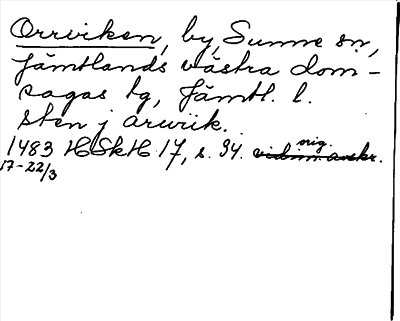 Orrviken, by, Sunne sn,
Jämtlands västra dom-
sagas tg, Jämtl. l.
sten j arwiik.
1483 HSkH 17, s. 94. orig.
17-22/3